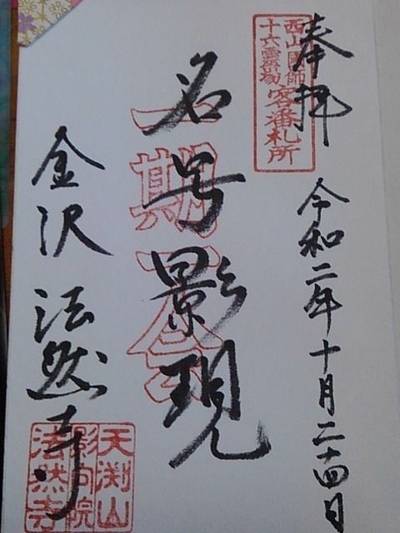 奉拝
令和二年十月二十四日
西山國師
十六霊場
客番札所
名号影現
一期一会
金沢 法然寺
天渕山
影向院
法然寺